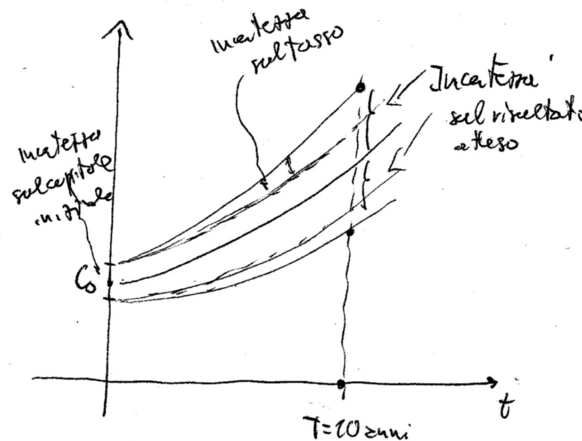 Incertezza
sul tasso
Incertezza
sul risultato
atteso
Incertezza
sul capitale
iniziale
C₀
t
T=20 anni